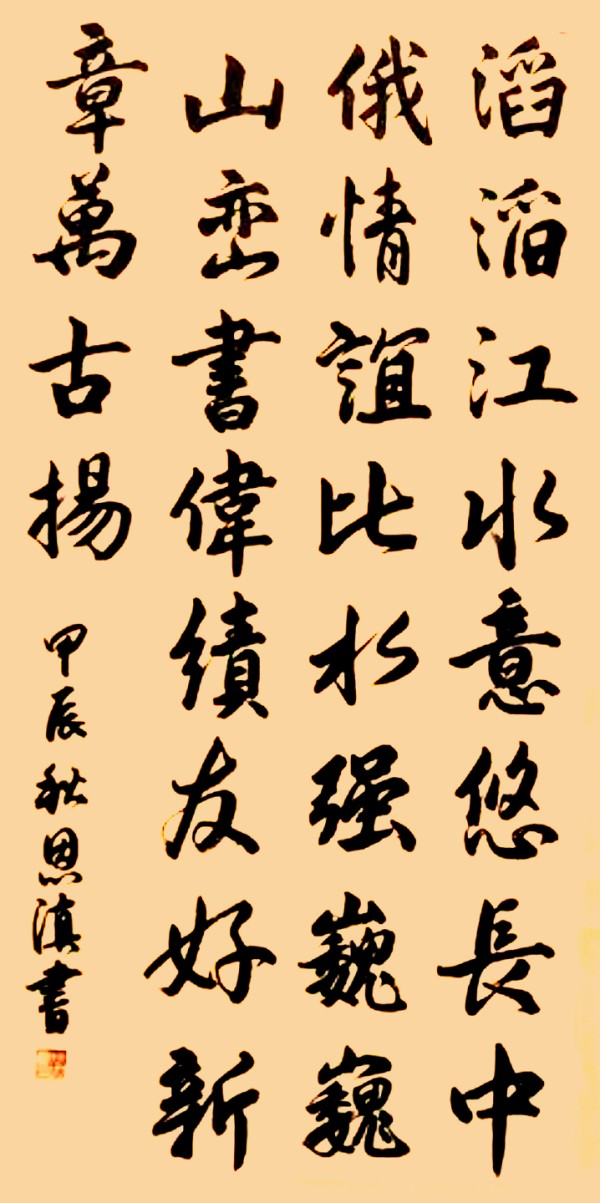 滔滔江水意悠長中
俄情誼比水强巍巍
山峦書偉績友好新
章萬古揚
甲辰秋恩滇書